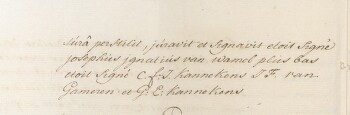 Surâ perstitit, juravit et Signavit etoit Signé
josephus jgnatius van wamel plus bas
etoit Signé C. f. J. Kannekens J F. van
Gameren et G. E. Kannekens.